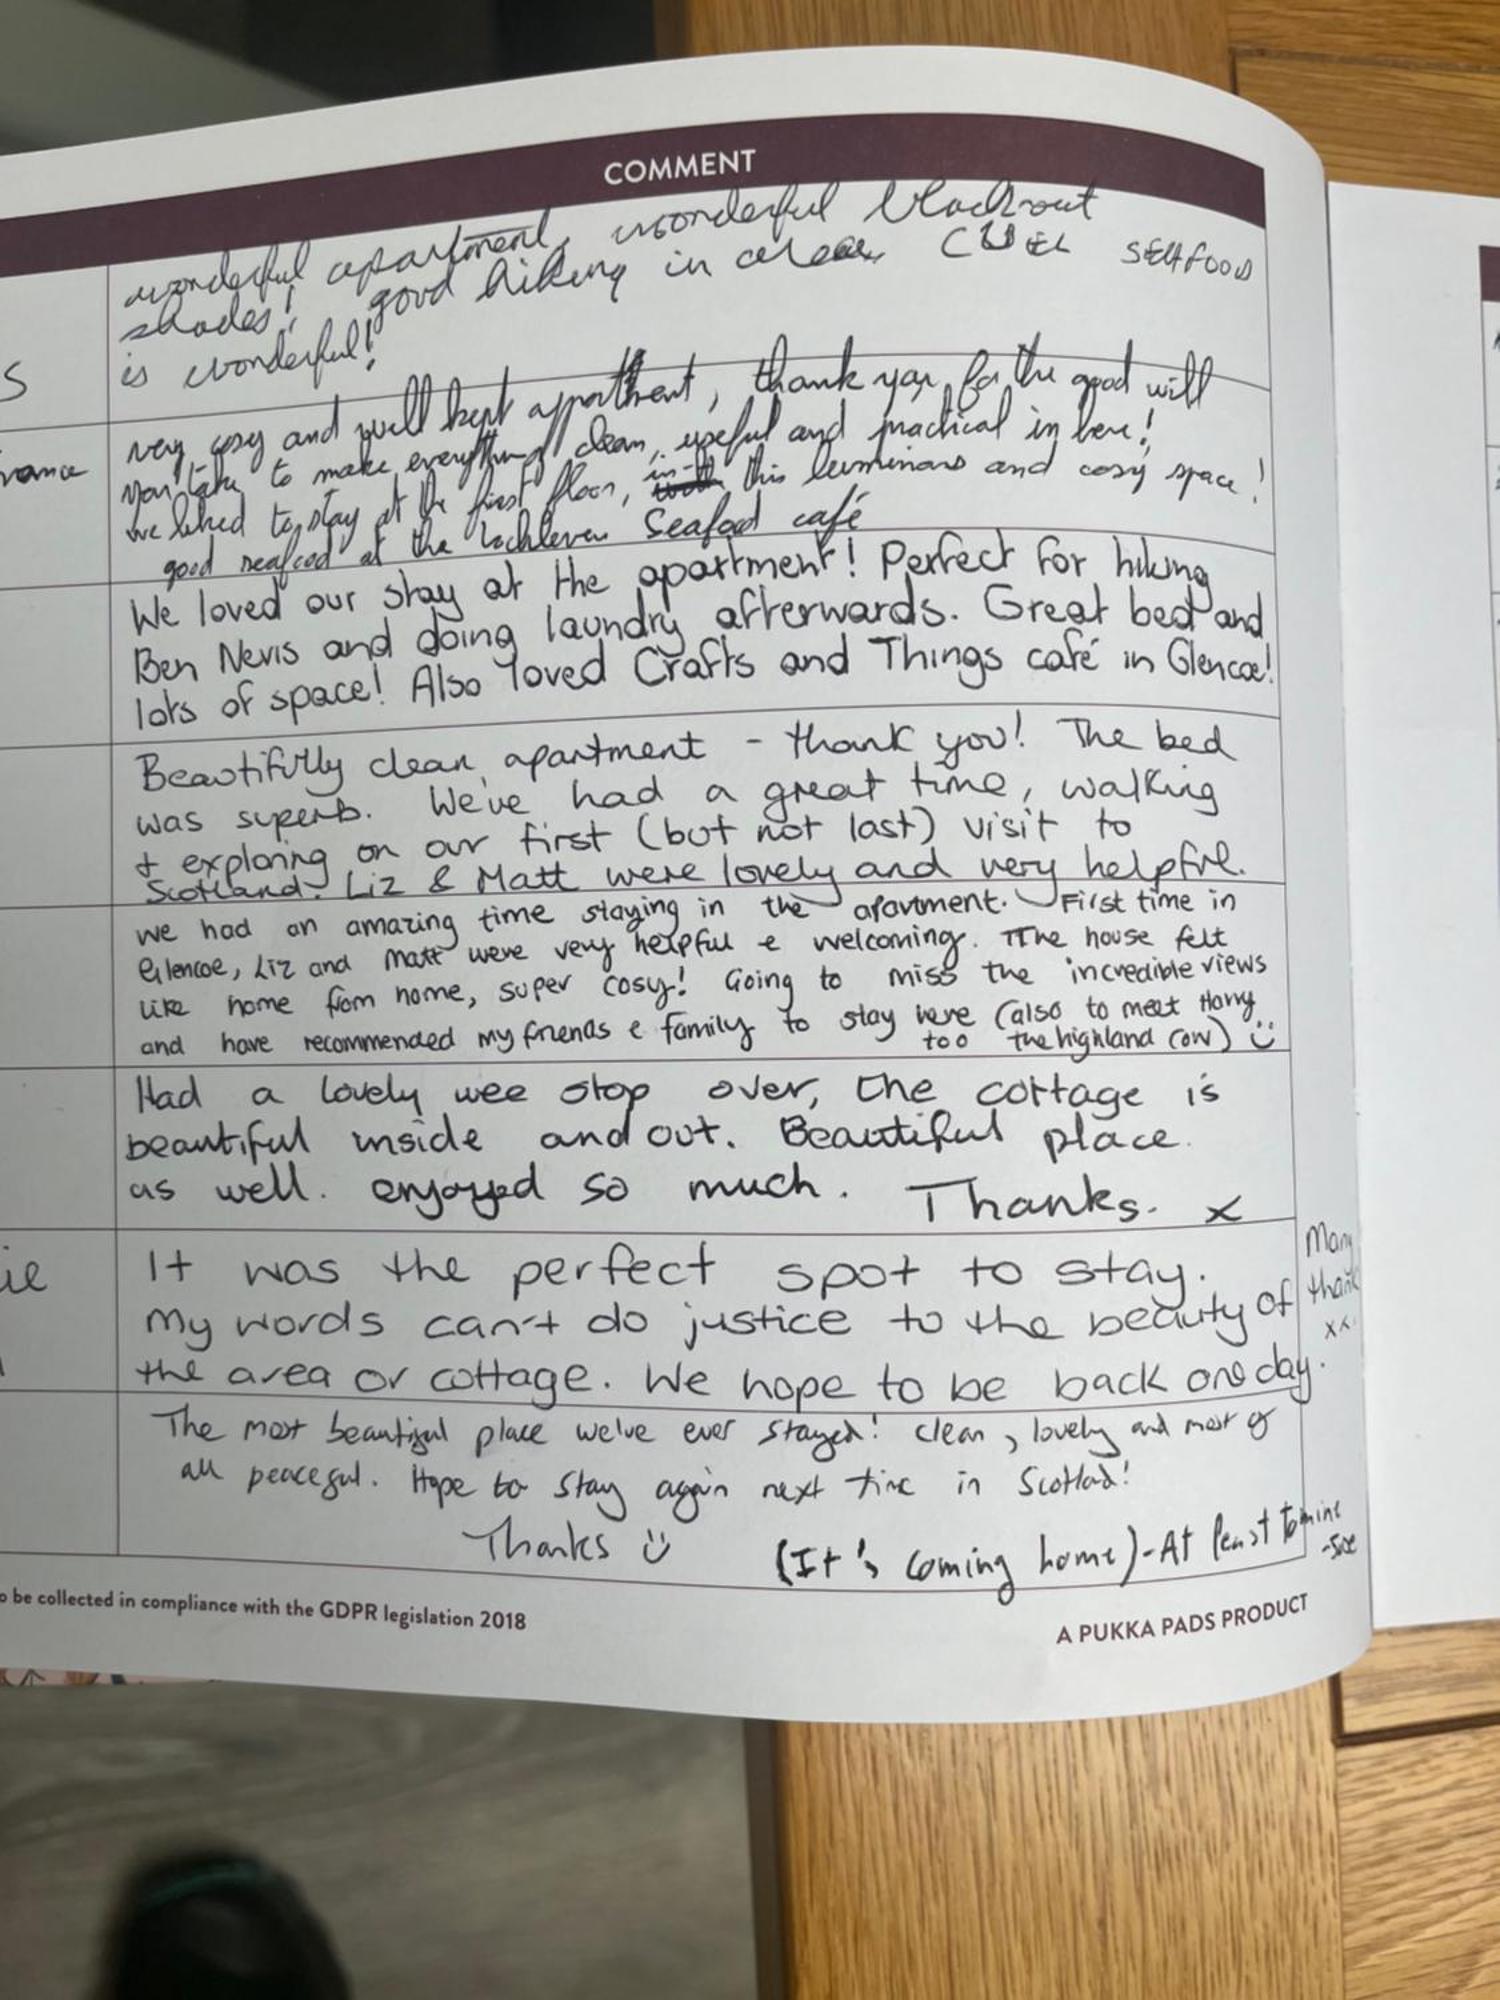 COMMENT
wonderful apartment, wonderful blackout
shades! good hiking in area. SEAFOOD
is wonderful!
s
very cosy and well kept apartment, thank you for the good will
you take to make everything clean, useful and practical in here!
rance
we liked to stay at the first floor, in this luminous and cosy space!
good seafood at the lochleven Seafood café
We loved our stay at the apartment! Perfect for hiking
Ben Nevis and doing laundry afterwards. Great bed and
lots of space! Also loved Crafts and Things café in Glencoe!
Beautifully clean apartment - thank you! The bed
was superb. We've had a great time, walking
+ exploring on our first (but not last) visit to
Scotland. Liz & Matt were lovely and very helpful.
we had an amazing time staying in the apartment. First time in
Glencoe, Liz and Matt were very helpful & welcoming. The house felt
like home from home, super cosy! Going to miss the incredible views
and have recommended my friends & family to stay here (also to meet Harry
too the highland cow) :)
Had a lovely wee stop over, the cottage is
beautiful inside and out. Beautiful place
as well. enjoyed so much. Thanks. x
ie
It was the perfect spot to stay.
My words can't do justice to the beauty of
the area or cottage. We hope to be back one day.
Many
thank
xx.
The most beautiful place we've ever stayed! Clean, lovely and most of
all peaceful. Hope to stay again next time in Scotlad!
Thanks :)
(It's coming home) - At least to mine
o be collected in compliance with the GDPR legislation 2018
A PUKKA PADS PRODUCT